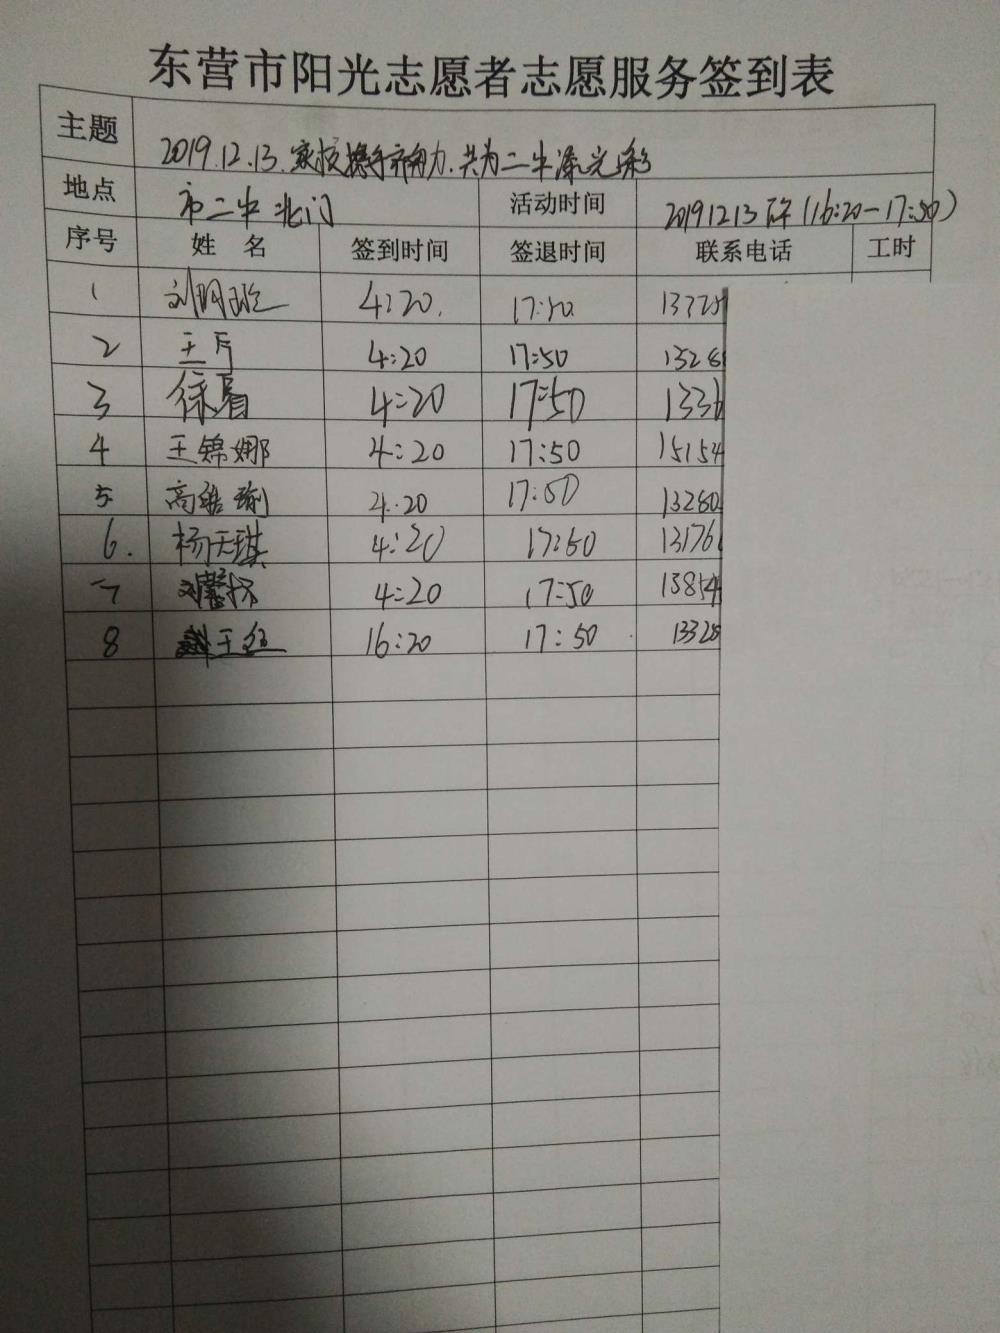 东营市阳光志愿者志愿服务签到表
主题 2019.12.13.家校携手齐努力.共为二中添光彩
地点 市二中北门 活动时间 20191213下午(16:20-17:50)
序号 姓 名 签到时间 签退时间 联系电话 工时
1 刘 4:20. 17:50
2 王 4:20 17:50 13286
3 徐眉 4:20 17:50 1336
4 王锦娜 4:20 17:50 15154
5 高 4:20 17:50 13280
6. 杨天琪 4:20 17:50 13176
7 刘 4:20 17:50 13854
8 王 16:20 17:50 1332